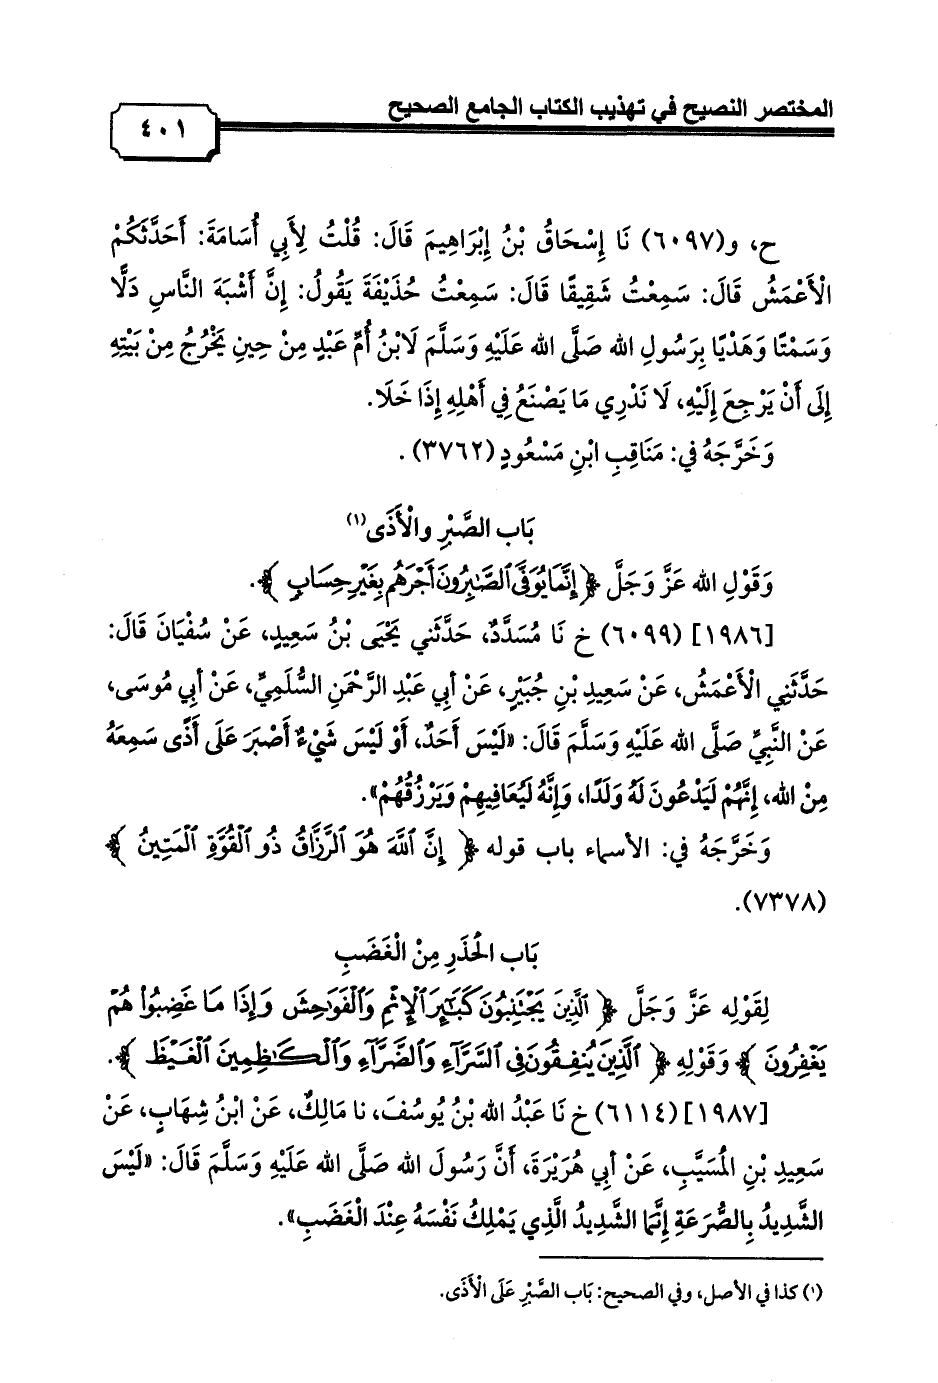 المختصر النصيح في تهذيب الكتاب الجامع الصحيح
٤٠١
ح، و(٦٠٩٧) نَا إِسْحَاقُ بْنُ إِبْرَاهِيمَ قَالَ: قُلْتُ لِأَبِي أُسَامَةَ: أَحَدَّثَكُمْ
الْأَعْمَشُ قَالَ: سَمِعْتُ شَقِيقًا قَالَ: سَمِعْتُ حُذَيْفَةَ يَقُولُ: إِنَّ أَشْبَهَ النَّاسِ دَلًّا
وَسَمْتًا وَهَدْيًا بِرَسُولِ الله صَلَّى الله عَلَيْهِ وَسَلَّمَ لَابْنُ أُمِّ عَبْدٍ مِنْ حِينِ يَخْرُجُ مِنْ بَيْتِهِ
إِلَى أَنْ يَرْجِعَ إِلَيْهِ، لَا نَدْرِي مَا يَصْنَعُ فِي أَهْلِهِ إِذَا خَلَا.
وَخَرَّجَهُ في: مَنَاقِبِ ابْنِ مَسْعُودٍ (٣٧٦٢).
بَاب الصَّبْرِ والْأَذَى(١)
وَقَوْلِ الله عَزَّ وَجَلَّ ﴿إِنَّمَا يُوَفَّى ٱلصَّٰبِرُونَ أَجْرَهُم بِغَيْرِ حِسَابٍ﴾.
[١٩٨٦] (٦٠٩٩) خ نَا مُسَدَّدٌ، حَدَّثَنِي يَحْيَى بْنُ سَعِيدٍ، عَنْ سُفْيَانَ قَالَ:
حَدَّثَنِي الْأَعْمَشُ، عَنْ سَعِيدِ بْنِ جُبَيْرٍ، عَنْ أبِي عَبْدِ الرَّحْمَنِ السُّلَمِيِّ، عَنْ أبِي مُوسَى،
عَنْ النَّبِيِّ صَلَّى الله عَلَيْهِ وَسَلَّمَ قَالَ: «لَيْسَ أَحَدٌ، أَوْ لَيْسَ شَيْءٌ أَصْبَرَ عَلَى أَذًى سَمِعَهُ
مِنْ الله، إِنَّهُمْ لَيَدْعُونَ لَهُ وَلَدًا، وَإِنَّهُ لَيُعَافِيهِمْ وَيَرْزُقُهُمْ».
وَخَرَّجَهُ في: الأسماء باب قوله ﴿إِنَّ ٱللَّهَ هُوَ ٱلرَّزَّاقُ ذُو ٱلْقُوَّةِ ٱلْمَتِينُ﴾
(٧٣٧٨).
بَاب الحَذَرِ مِنْ الْغَضَبِ
لِقَوْلِه عَزَّ وَجَلَّ ﴿ٱلَّذِينَ يَجْتَنِبُونَ كَبَٰٓئِرَ ٱلْإِثْمِ وَٱلْفَوَٰحِشَ وَإِذَا مَا غَضِبُوا۟ هُمْ
يَغْفِرُونَ﴾ وَقَوْلِهِ ﴿ٱلَّذِينَ يُنفِقُونَ فِى ٱلسَّرَّآءِ وَٱلضَّرَّآءِ وَٱلْكَٰظِمِينَ ٱلْغَيْظَ﴾.
[١٩٨٧] (٦١١٤) خ نَا عَبْدُ الله بْنُ يُوسُفَ، نا مَالِكٌ، عَنْ ابْنُ شِهَابٍ، عَنْ
سَعِيدِ بْنِ المُسَيَّبِ، عَنْ أبِي هُرَيْرَةَ، أَنَّ رَسُولَ الله صَلَّى الله عَلَيْهِ وَسَلَّمَ قَالَ: «لَيْسَ
الشَّدِيدُ بِالصُّرَعَةِ إِنَّمَا الشَّدِيدُ الَّذِي يَمْلِكُ نَفْسَهُ عِنْدَ الْغَضَبِ».
(١) كذا في الأصل، وفي الصحيح: بَاب الصَّبْرِ عَلَى الْأَذَى.